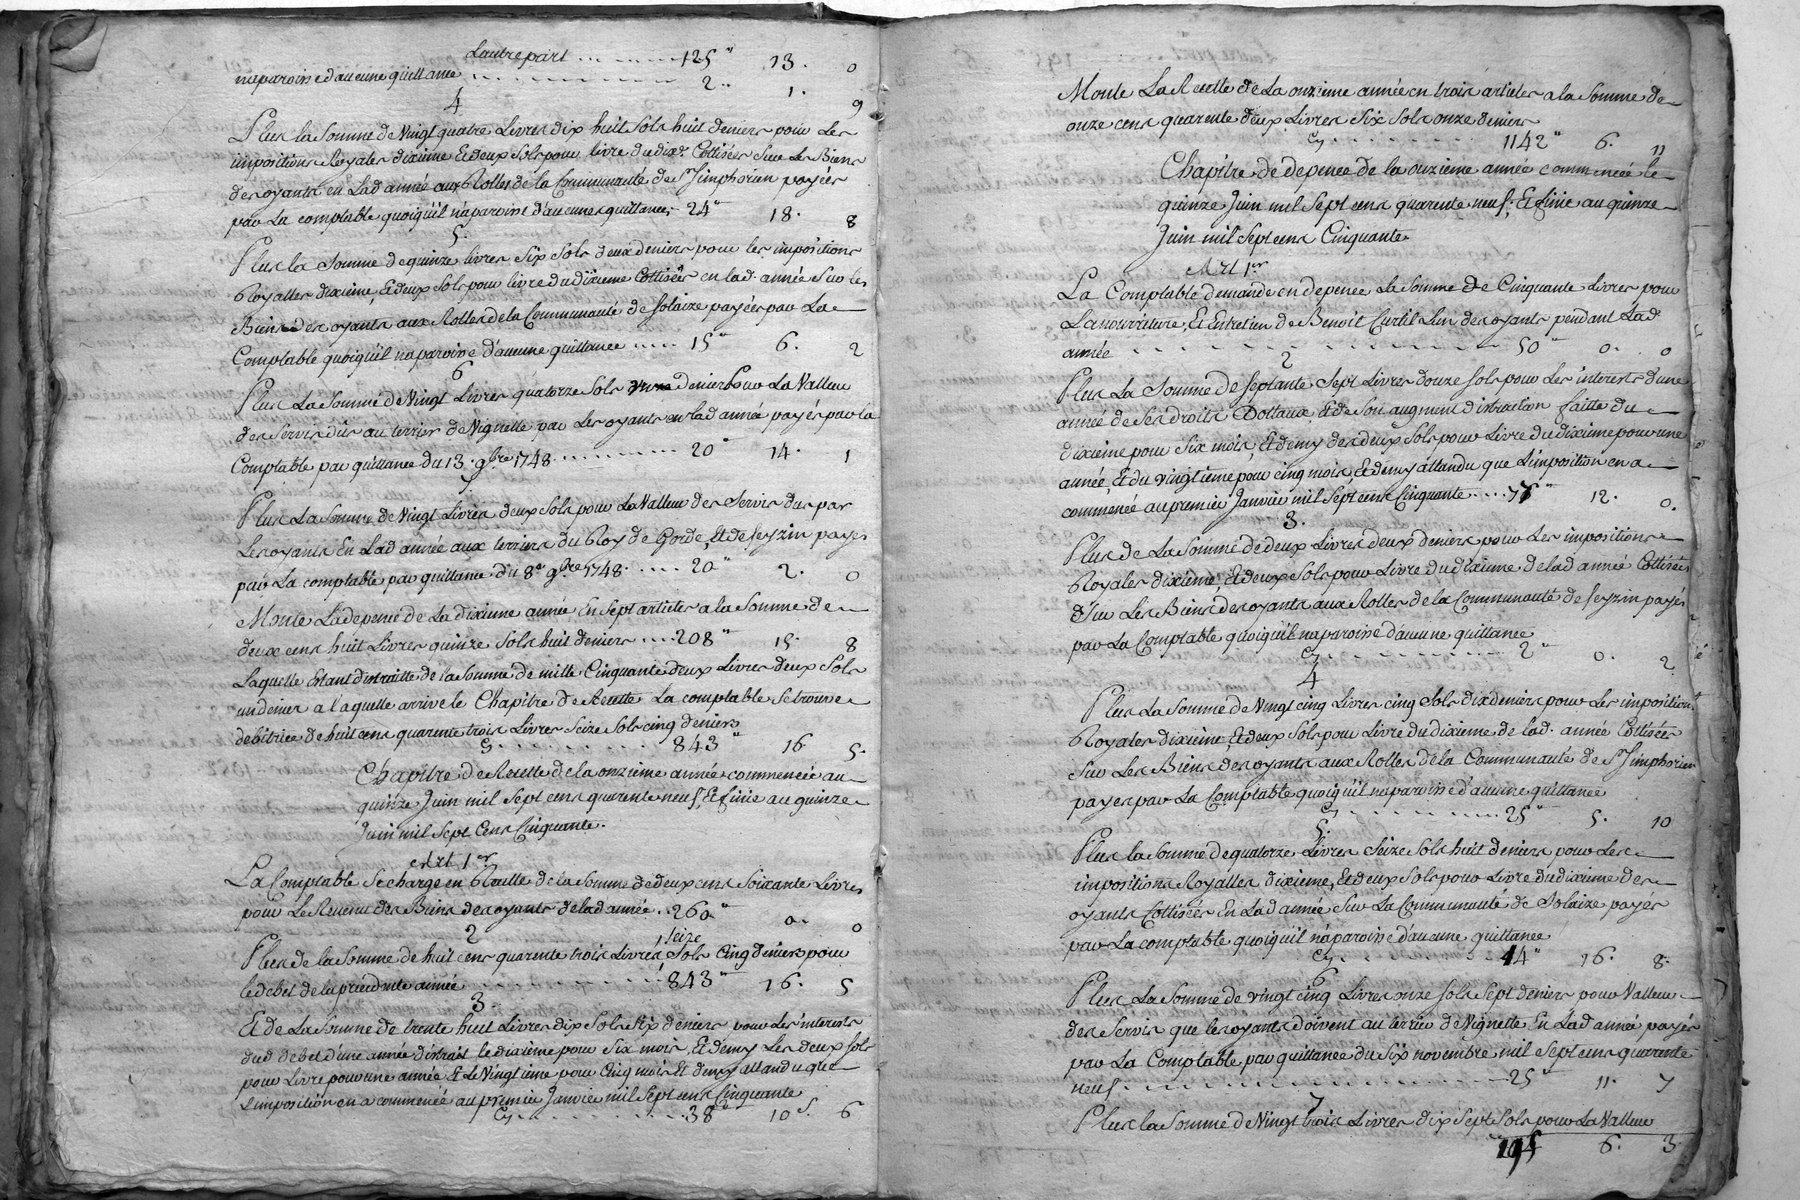 Lautre part ........ 125" 13. 0
naparoist daucune quittance ........ 2" 1. 9
4
Plus la Somme de Vingt quatre Livres dix huit Sols huit deniers pour Les
impositions Royales dixieme Et deux Sols pour livre du dixe. Cottisées Sur Les Biens
des oyants en Lad année aux Rolles de la Communauté de St Simphorien payées
par La comptable quoiqu'il naparoist d'aucunes quittances 24" 18. 8
5.
Plus la Somme de quinze livres Six Sols deux deniers pour les impositions
Royalles dixieme, Et deux Sols pour livre du dixieme Cottisées en lad. année Sur les
Biens des oyants aux Rolles de la Communauté de Solaize payées par La
Comptable quoiqu'il naparoisse d'aucune quittance ..... 15" 6. 2
6
Plus La Somme de Vingt Livres quatorze Sols denier pour La Valleur
des Servis dûs au terrier de Vignette par Les oyants en lad année payés par la
Comptable par quittance du 13. 9bre 1748 ........ 20" 14. 1
7
Plus La Somme de Vingt Livres deux Sols pour La Valleur des Servis dus par
Les oyants En Lad année aux terriers du Roy de Gorde, Et de Seyzin payes
par La comptable par quittance du 8e 9bre 1748. ..... 20" 2. 0
Monte La depense de La dixieme année En Sept articles a la Somme de
deux cens huit Livres quinze Sols huit deniers .... 208" 15. 8
Laquelle Estant distraitte de la Somme de mille Cinquante deux Livres deux Sols
un denier a laquelle arrive le Chapitre de Recette La comptable Se trouve
debitrice de huit cens quarente trois Livres Seize Sols cinq deniers
Cy ........ 843" 16 5.
Chapitre de Recette de la onzieme année commencée au
quinze Juin mil Sept cens quarente neuf, Et finie au quinze
Juin mil Sept Cens Cinquante.
Art 1er
La Comptable Se charge en Recette de la Somme de deux cens Soixante Livres
pour Le Revenu des Biens des oyants de lad année .. 260" 0. 0
2
Plus de la Somme de huit cens quarente trois Livres, Seize Sols Cinq deniers pour
le debet de la precedente année ........ 843" 16. 5
3.
Et de La Somme de trente huit Livres dix Sols Six deniers pour Les interests
dud debet d'une année distrait le dixième pour Six mois, Et demy Les deux Sols
pour Livre pour une année Et Le Vingtieme pour Cinq mois Et demy attandu que
Limposition en a commencé au premier Janvier mil Sept cens Cinquante
Cy ........ 38" 10 S. 6
Monte La Recette de La onzieme année en trois articles a la Somme de
onze cens quarente deux Livres Six Sols onze deniers
Cy ........ 1142" 6. 11
Chapitre de depence de la onzieme année commencée le
quinze Juin mil Sept cens quarente neuf, Et finie au quinze
Juin mil Sept cens Cinquante.
Art 1er
La Comptable demande en depence La Somme de Cinquante Livres pour
La nourriture, Et Entretien de Benoit Curtil Lun des oyants pendant Lad
année ........ 50" 0. 0
2
Plus La Somme de Septante Sept Livres douze Sols pour Les interests d'une
année de Ses droits Dottaux Et de Son augment distraction faitte du
dixieme pour Six mois, Et demy des deux Sols pour Livre du dixieme pour une
année, Et du vingtieme pour cinq mois, Et demy attandu que Limposition en a
commencé au premier Janvier mil Sept cens Cinquante .... 77" 12. 0.
3.
Plus de La Somme de deux Livres deux deniers pour Les impositions
Royales dixieme, Et deux Sols pour Livre du dixieme de lad année Cottisées
Sur Les Biens des oyants aux Rolles de la Communauté de Seyzin payés
par La Comptable quoiqu'il naparoisse d'aucune quittance
Cy ........ 2" 0. 2
4
Plus La Somme de Vingt cinq Livres cinq Sols dix deniers pour Les impositions
Royales dixieme, Et deux Sols pour Livre du dixieme de Lad. année Cottisées
Sur Les Biens des oyants aux Rolles de la Communauté de St Simphorien
payes par La Comptable quoiqu'il naparoisse d'aucune quittance
Cy ........ 25" 5. 10
5.
Plus la Somme de quatorze Livres Seize Sols huit deniers pour Les
impositions Royalles dixieme, Et deux Sols pour Livre du dixieme des
oyants Cottisées En Lad année Sur La Communauté de Solaize payes
par La comptable quoiqu'il naparoisse d'aucune quittance
Cy ........ 14" 16. 8.
6
Plus La Somme de vingt cinq Livres onze Sols Sept deniers pour Valleur
des Servis que les oyants doivent au terrier de Vignette En Lad année payés
par La Comptable, par quittance du Six novembre mil Sept cens quarente
neuf ........ 25" 11. 7
7
Plus la Somme de Vingt trois Livres dix Sept Sols pour La Valleur
195 6. 3